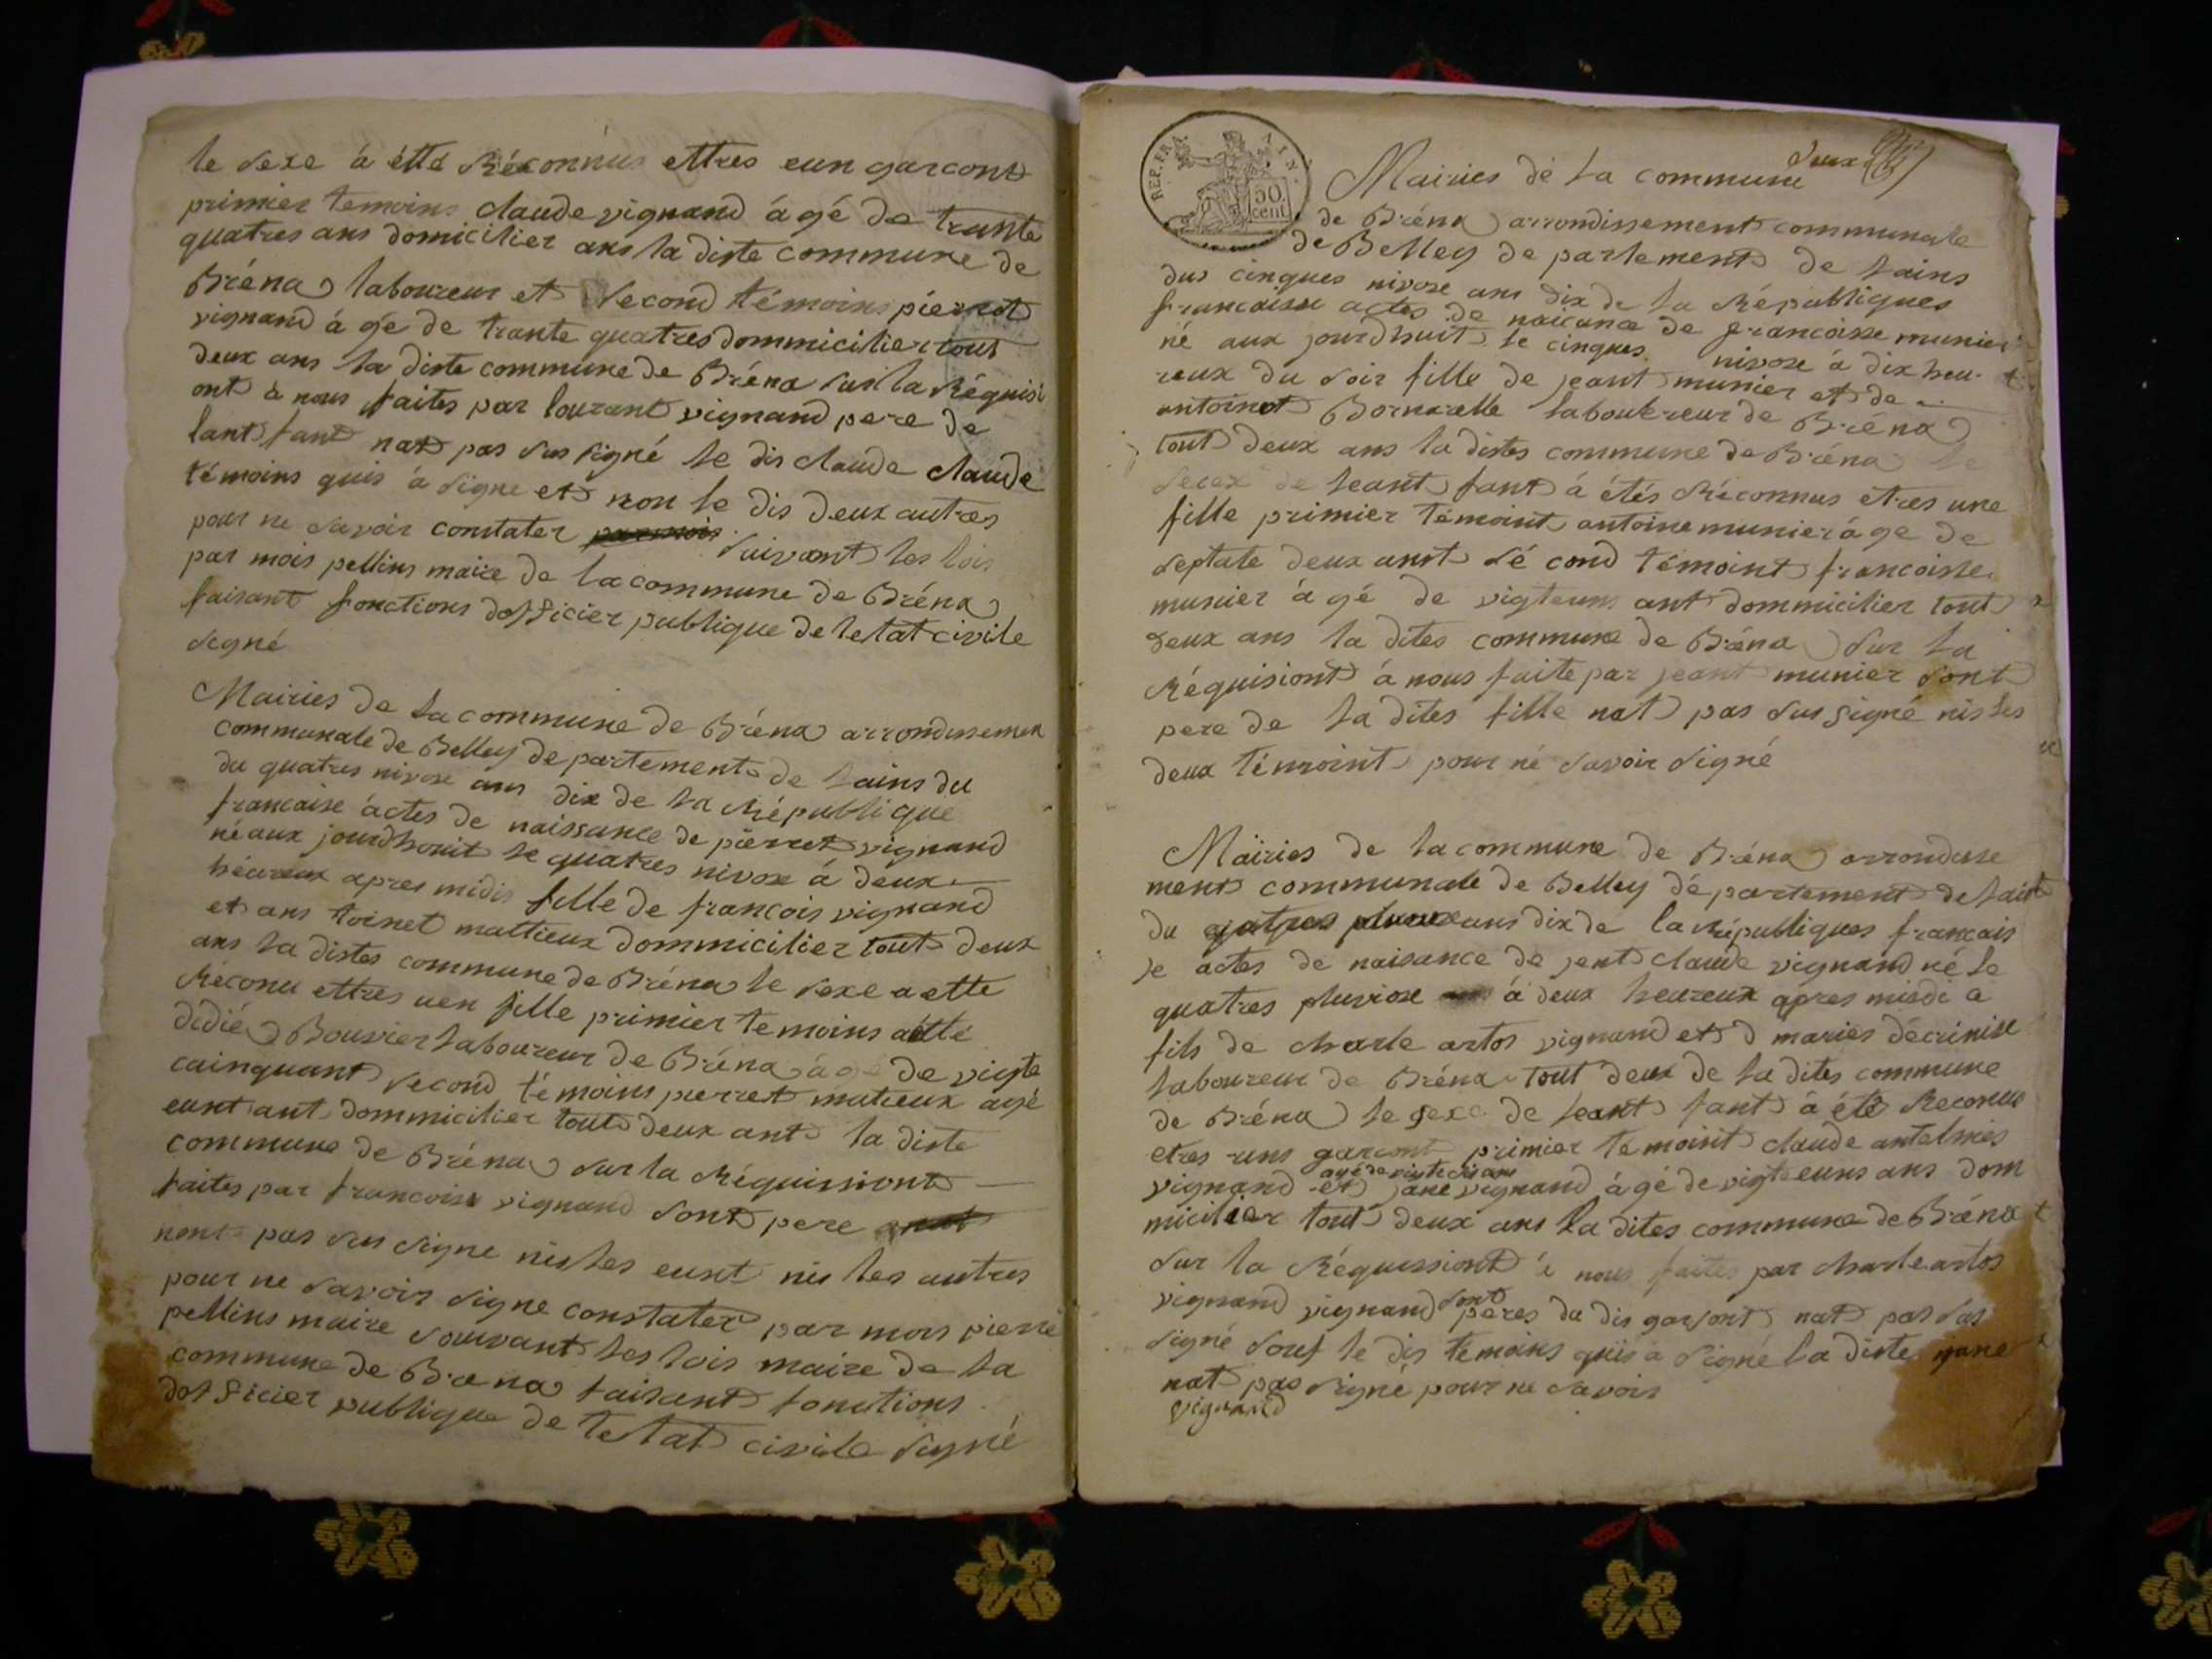 le sexe à étté Réconnus ettres eun garcont
primier temoins claude vignand âgé de trante
quatres ans domicilier ans la diste commune de
Bréna laboureur et second témoins pierret
vignand à gé de trante quatres dommicilier tout
deux ans la diste commune de Bréna sur la Réquisi
ont à nous faites par lourant vignand pere de
lant fant nat pas sus signé le dis claude claude
témoins quis à signe et non le dis deux autres
pour ne savoir constater suivant les lois
par mois pellins maire de la commune de Bréna
faisant fonctions dofficier publique de letat civile
signé
Mairies de la commune de Bréna arrondissemen
communale de Belley de partements de lains du
du quatres nivose ans dix de la République
francaise actes de naissance de pierret vignand
né aux jourdhouit le quatres nivose à deux
héureux apres midis fille de françois vignand
et ans toinet mattieux dommicilier tout deux
ans la distes commune de Bréna le sexe a ette
Réconu ettres uen fille primier temoins a étté
didié Bouvier laboureur de Bréna à gé de vigte
cainquant second témoins pierret matieux agé
eunt ant dommicilier tout deux ant la diste
commune de Bréna sur la Réquissiont
faites par francoise vignand sont pere
nont pas sus signe nis les eunt nis les autres
pour ne savoir signe constater par mois pierre
pellins maire souvant les lois maire de la
commune de Bréna faisant fonctions
dofficier publique de letat civile signé
REP. FRA. AIN.
50 cent
deux
Mairies dé la commune
de Bréna arrondissement communale
de Belley de partements de lains
dus cinques nivose ans dix de la Républiques
francaisse actes de naicance de francoisse munier
né aux jourdhuit le cinques nivose à dix heu
reux du soir fille de jeant munier et de
antoinet Bornarelle laboureur de Bréna
tout deux ans la distes commune de Bréna le
secex de leant fant à étés Réconnus etres une
fille primier témoint antoine munier âge de
septate deux anst sé cond témoint francoisse
munier à gé de vigteuns ant dommicilier tout
deux ans la dites commune de Bréna sur la
Réquisiont à nous faite par jeant munier sont
pere de la dites fille nat pas sus signé nis les
deux témoint pour né savoir signé
Mairies de la commune de Bréna arrondisse
ments communale de Belley dé partement de laint
du quatres pluviose ans dix de la Républiques francais
se actes de naisance de jent claude vignand né le
quatres pluviose à deux heureux apres miedi a
fils de charle artos vignand et d maries décrinise
laboureur de Bréna tout deux de la dites commune
de Bréna le sexe de leant fant à été Reconue
etres uns garcont primier temoint claude antelmes
agé de vigte dis ans
vignand et jane vignand à gé de vigte euns ans dom
micilier tout deux ans la dites commune de Bréna
sur la Réquissiont à nous faites par charle artos
vignand vignand sont peres du dis garsont nat pas sus
signé souf le dis temoins quis a signé la diste jane
nat pas signé pour ne savoir
vignand